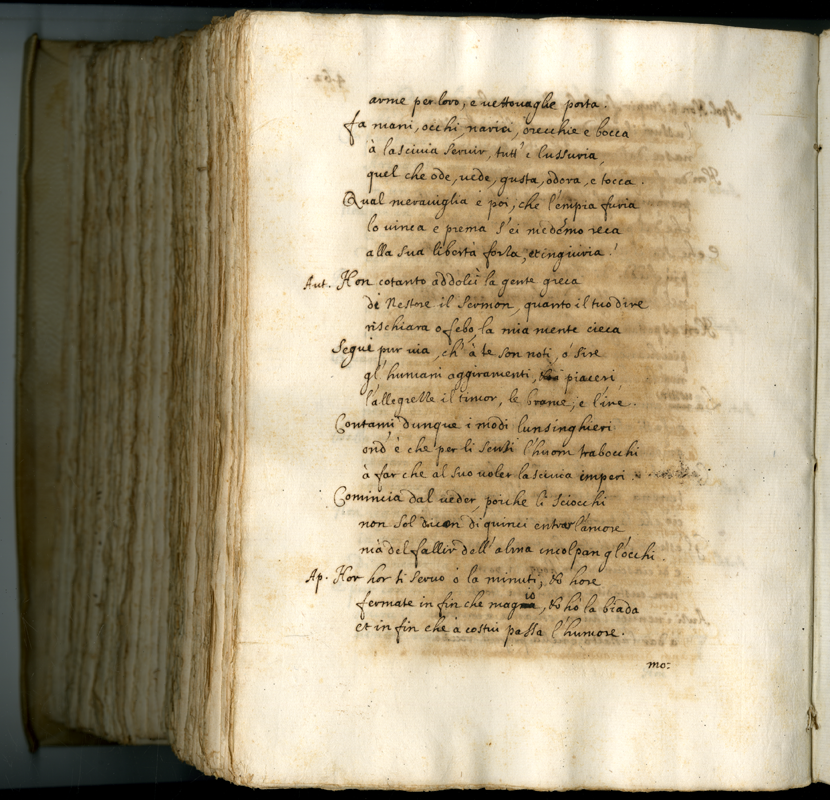 arme per loro, e vettovaglie porta.
Fa mani, occhi, narici, orecchie e bocca
à lascivia servir, tutt' è lussuria,
quel che ode, vede, gusta, odora, e tocca.
Qual meraviglia è poi, che l'empia furia
lo vinca e prema s'ei medemo reca
alla sua libertà forza, et ingiuria?
Aut. Non cotanto addolcì la gente greca
di Nestore il sermon, quanto il tuo dire
rischiara o febo, la mia mente cieca
Segui pur via, ch' à te son noti, ó sire
gl' humani aggiramenti, piaceri,
l'allegrezze il timor, le brame, e l'ire.
Contami dunque i modi lunsinghieri
ond' è che per li sensi l'huom trabocchi
à far che al suo voler lascivia imperi.
Comincia dal veder, poiche li sciocchi
non sol dicon di quinci entrar l'amore
mà del fallir dell' alma incolpan gl'occhi.
Ap. Hor hor ti servo ó la minuti, et hore
fermate in fin che magnio, et hò la biada
et in fin che à costui passa l'humore.
mo: